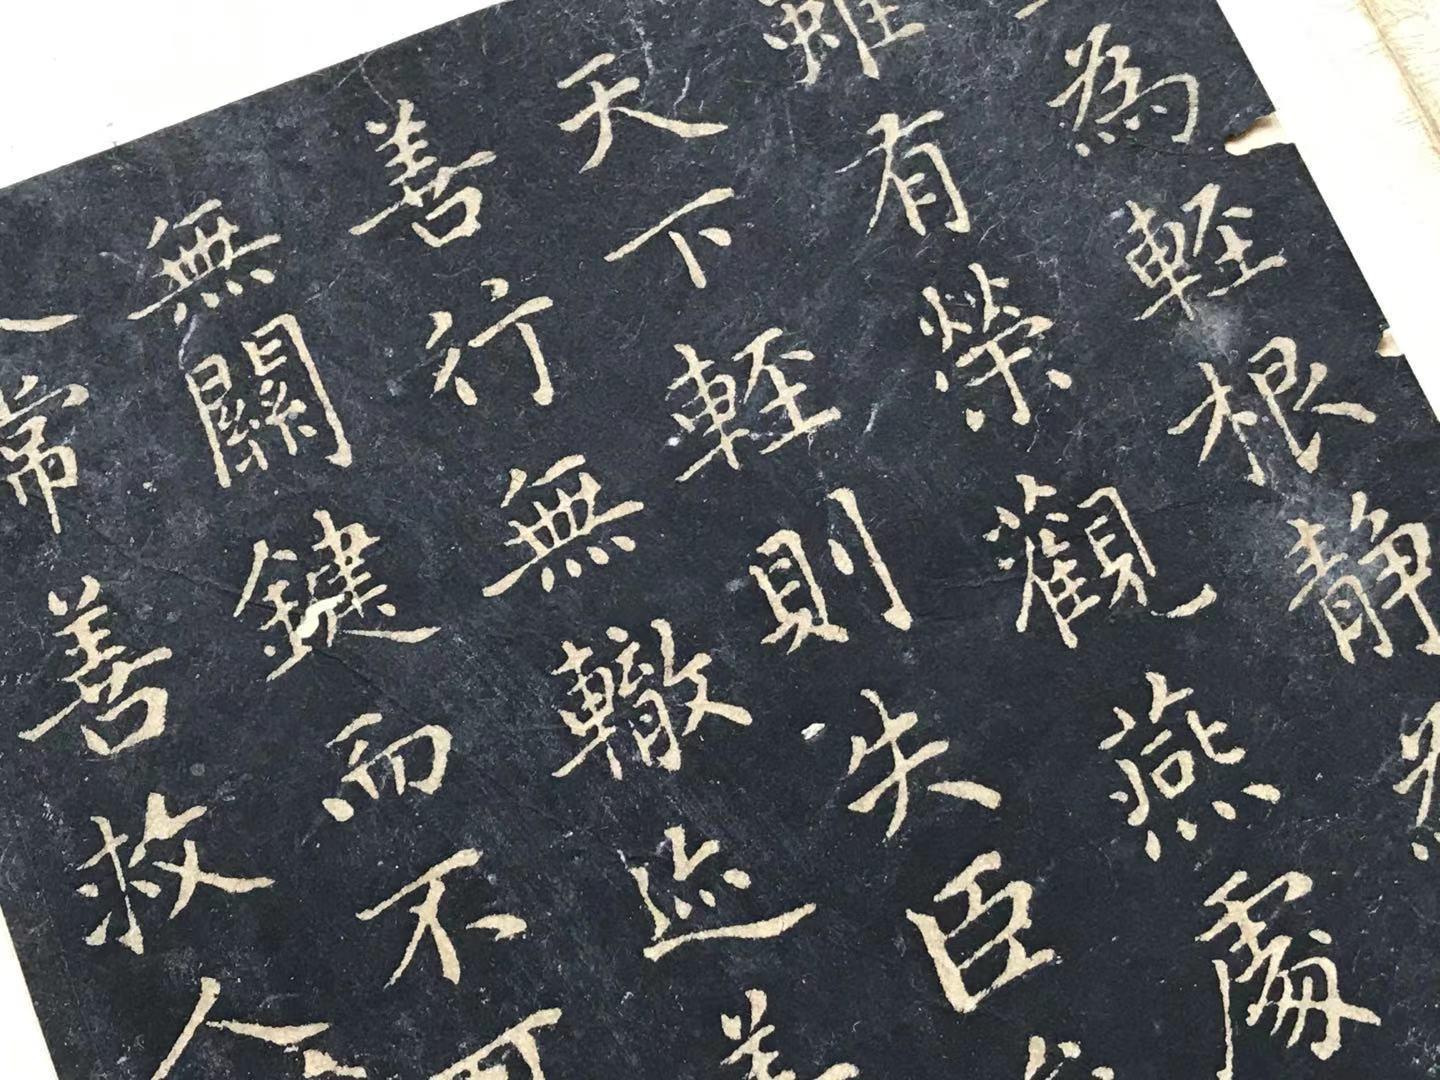 為輕根静
雖有榮觀燕處
天下輕則失臣
善行無轍迹善
無關鍵而不可
人常善救人